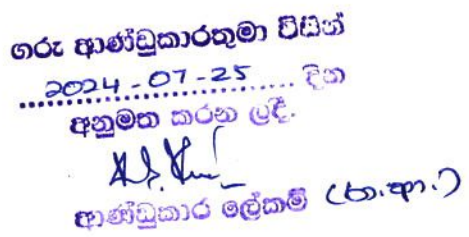 ගරු ආණ්ඩුකාරතුමා විසින්
2024-07-25 දින
අනුමත කරන ලදී.
ආණ්ඩුකාර ලේකම් (ත.ආ.)